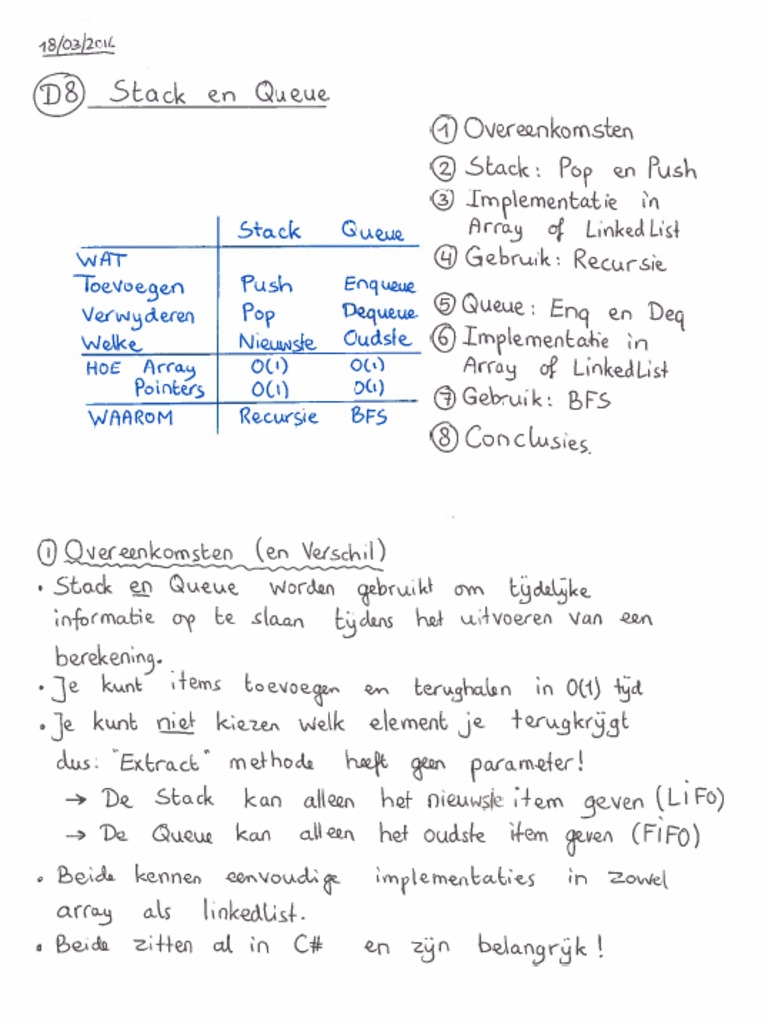 18/03/2016
D8 Stack en Queue
① Overeenkomsten
② Stack: Pop en Push
③ Implementatie in
Array of LinkedList
④ Gebruik: Recursie
⑤ Queue: Enq en Deq
⑥ Implementatie in
Array of LinkedList
⑦ Gebruik: BFS
⑧ Conclusies.
Stack Queue
WAT
Toevoegen Push Enqueue
Verwyderen Pop Dequeue
Welke Nieuwste Oudste
HOE Array O(1) O(1)
Pointers O(1) O(1)
WAAROM Recursie BFS
① Overeenkomsten (en Verschil)
• Stack en Queue worden gebruikt om tijdelijke
informatie op te slaan tijdens het uitvoeren van een
berekening.
• Je kunt items toevoegen en terughalen in O(1) tijd
• Je kunt niet kiezen welk element je terugkrijgt
dus: "Extract" methode heeft geen parameter!
→ De Stack kan alleen het nieuwste item geven (LiFO)
→ De Queue kan alleen het oudste item geven (FiFO)
• Beide kennen eenvoudige implementaties in zowel
array als linkedlist.
• Beide zitten al in C# en zijn belangrijk!